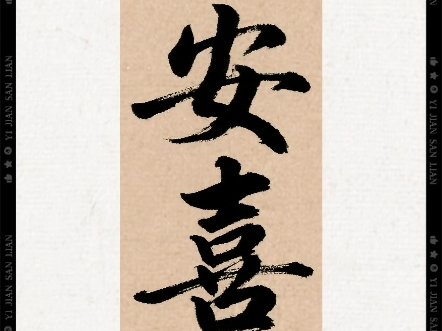 安喜
YI JIAN SAN LIAN
YI JIAN SAN LIAN
YI JIAN SAN LIAN
YI JIAN SAN LIAN